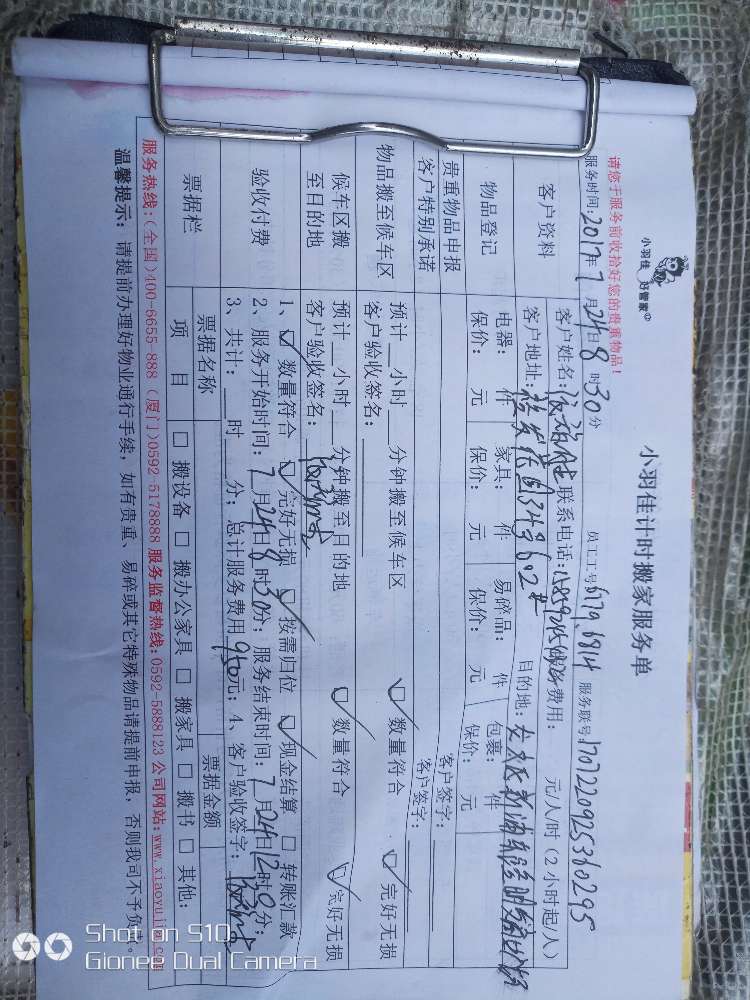 小羽佳 好管家
小羽佳计时搬家服务单
请您于服务前收拾好您的贵重物品！
服务时间：2017年7月24日8时30分 员工工号6779，6814 服务联号1707220925360295
客户资料
客户姓名： 联系电话： 服务费用： 元/人/时（2小时起/人）
客户地址： 349 602 目的地：
物品登记
电器： 件 家具： 件 易碎品： 件 包裹： 件
保价： 元 保价： 元 保价： 元 保价： 元
贵重物品申报 客户签字：
客户特别承诺 客户签字：
物品搬至候车区
预计 小时 分钟搬至候车区 ☑数量符合 ☑完好无损
客户验收签名：
候车区搬至目的地
预计 小时 分钟搬至目的地 ☑数量符合 ☑完好无损
客户验收签名：
验收付费
1、☑数量符合 ☑完好无损 ☑按需归位 ☑现金结算 □转账汇款
2、服务开始时间：7月24日8时30分；服务结束时间：7月24日12时0分；
3、共计： 时 分；总计服务费用950元；4、客户验收签字：
票据栏
票据名称 票据金额
项 目 □搬设备 □搬办公家具 □搬家具 □搬书 □其他：
服务热线：（全国）400-6655 888（厦门）0592 5178888 服务监督热线：0592-5888123 公司网站：www.xiaoyujia.com
温馨提示：请提前办理好物业通行手续，如有贵重、易碎或其它特殊物品请提前申报，否则我司不予负责。
Shot on S10
Gionee Dual Camera